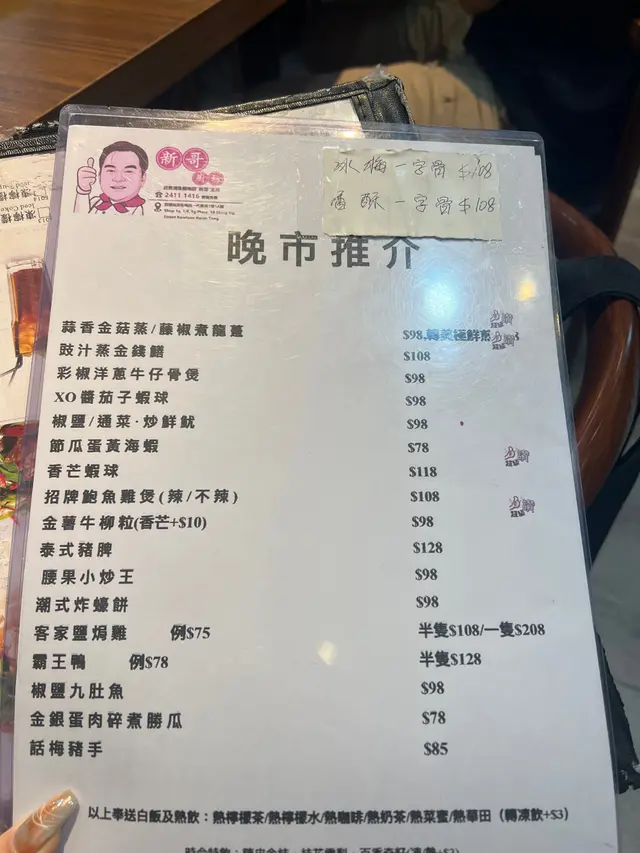 新哥
2411 1416
冰梅一字骨 $108
香酥一字骨 $108
晚市推介
蒜香金菇蒸/藤椒煮龍躉 $98
豉汁蒸金錢鱔 $108
彩椒洋蔥牛仔骨煲 $98
XO醬茄子蝦球 $98
椒鹽/通菜·炒鮮魷 $98
節瓜蛋黃海蝦 $78
香芒蝦球 $118
招牌鮑魚雞煲(辣/不辣) $108
金薯牛柳粒(香芒+$10) $98
泰式豬脾 $128
腰果小炒王 $98
潮式炸蠔餅 $98
客家鹽焗雞 例$75 半隻$108/一隻$208
霸王鴨 例$78 半隻$128
椒鹽九肚魚 $98
金銀蛋肉碎煮勝瓜 $78
話梅豬手 $85
以上奉送白飯及熱飲：熱檸檬茶/熱檸檬水/熱咖啡/熱奶茶/熱菜蜜/熱華田（轉凍飲+$3）